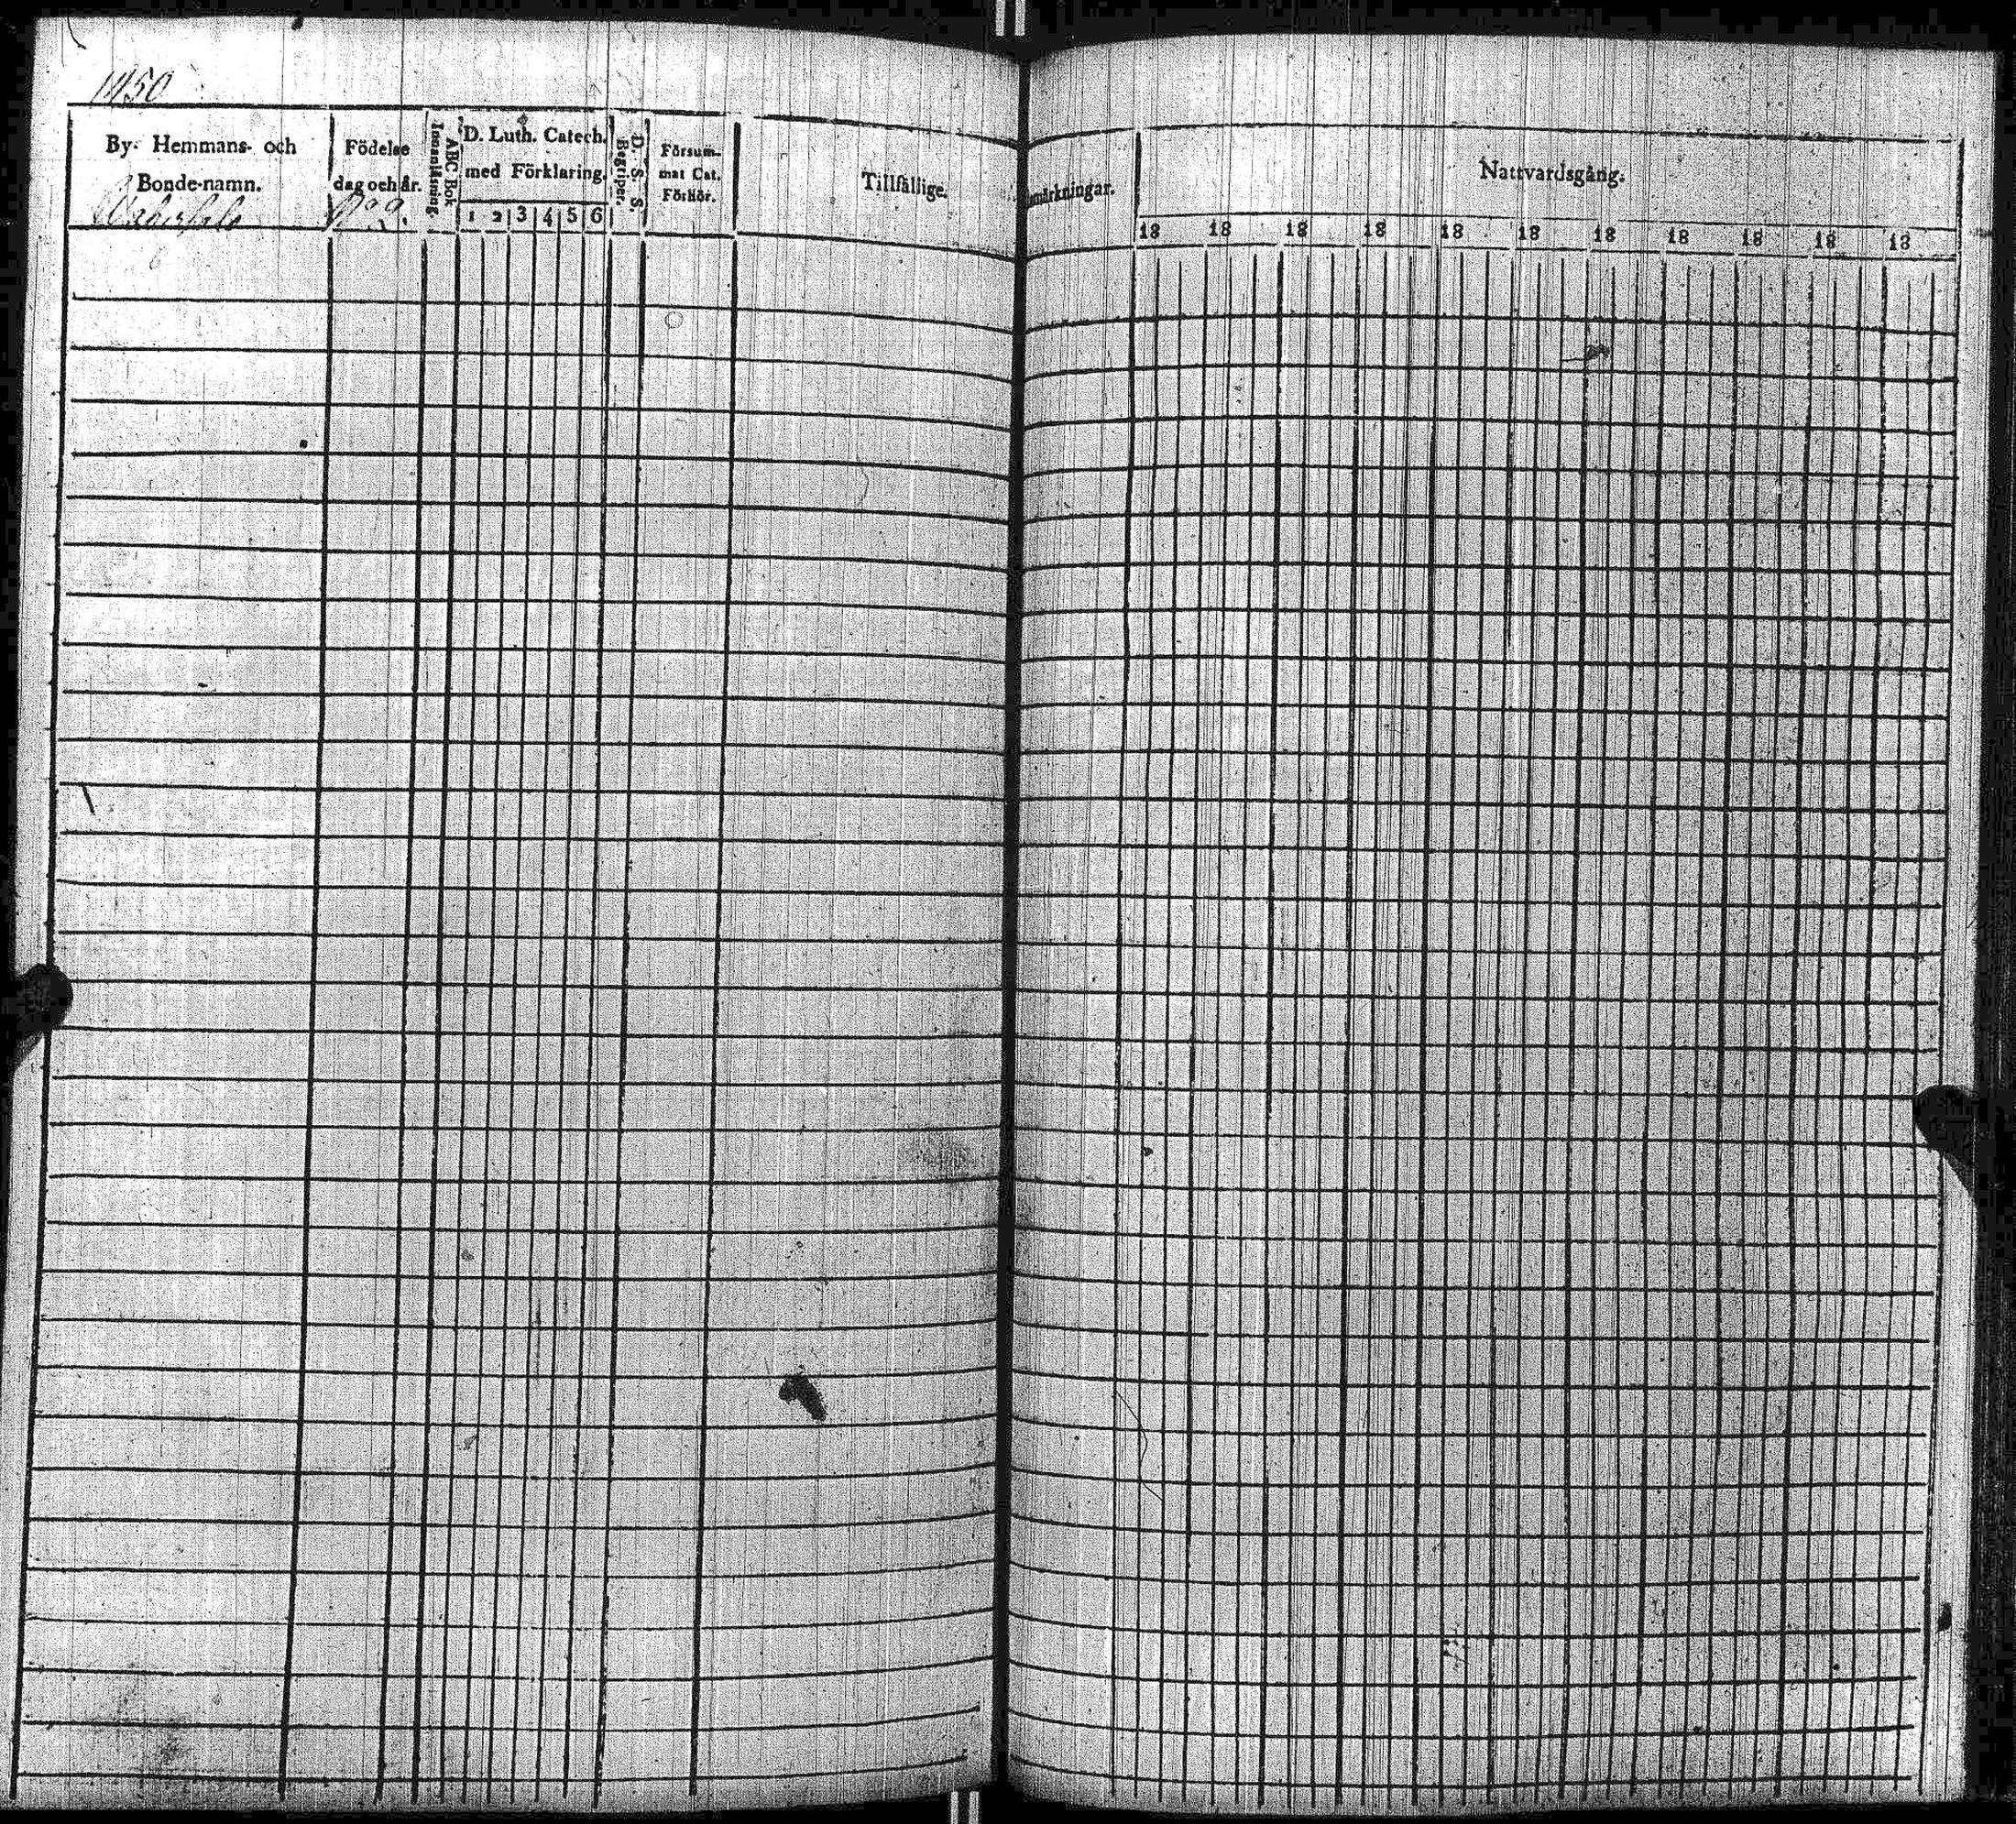 By- Hemmans- och
Bonde-namn.
Födelse
dag och år.
N:o 9.
Innanläsning.
ABC Bok
D. Luth. Catech.
med Förklaring.
1 2 3 4 5 6
D. S. S.
Begriper.
Försum-
mat Cat.
Förhör.
Tillfällige
anmärkningar.
Nattvardsgång.
18 18 18 18 18 18 18 18 18 18 18